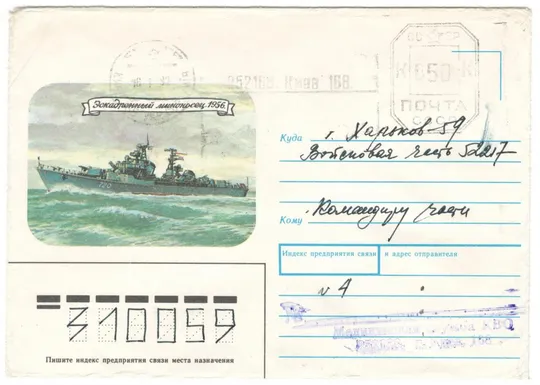 Эскадренный миноносец. 1956.
650 К
ПОЧТА
252168, Киев 168.
Куда г. Харьков-59
Войсковая часть 52217
Кому Командиру части
Индекс предприятия связи и адрес отправителя
v 4
310059
Пишите индекс предприятия связи места назначения